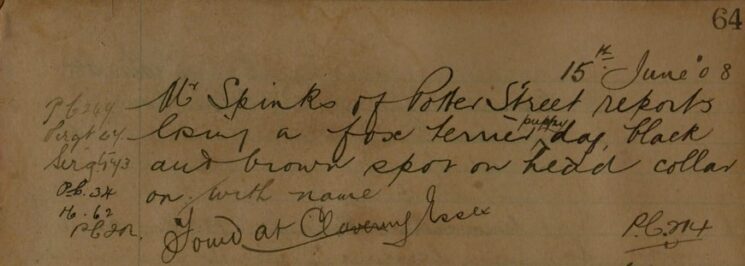 64
15th June '08
Mr Spinks of Potter Street reports
losing a fox terrier puppy dog, black
and brown spot on head collar
on with name
Found at Clavering Essex
P.C. 264
Sergt 64
Sergt 43
P.C. 34
H. 62
P.C. 202.
P.C. 274